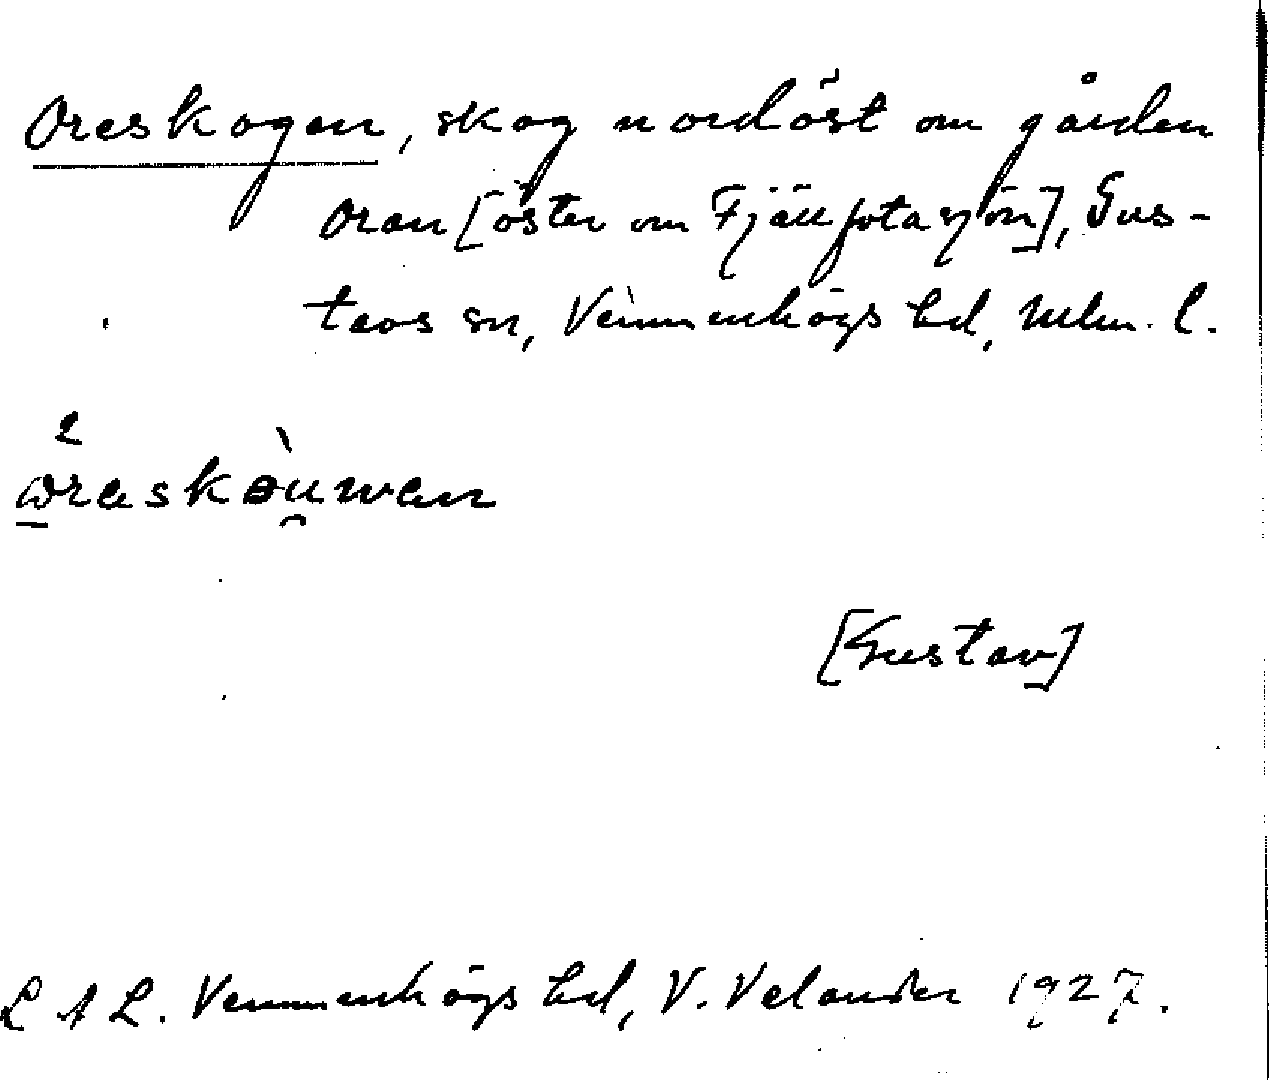 Oreskogen, skog nordöst om gården
Oran [öster om Fjällfotasjön], Gus-
tavs sn, Vemmenhögs hd, Mlm. l.
[Gustav]
L A L. Vemmenhögs hd, V. Velander 1927.